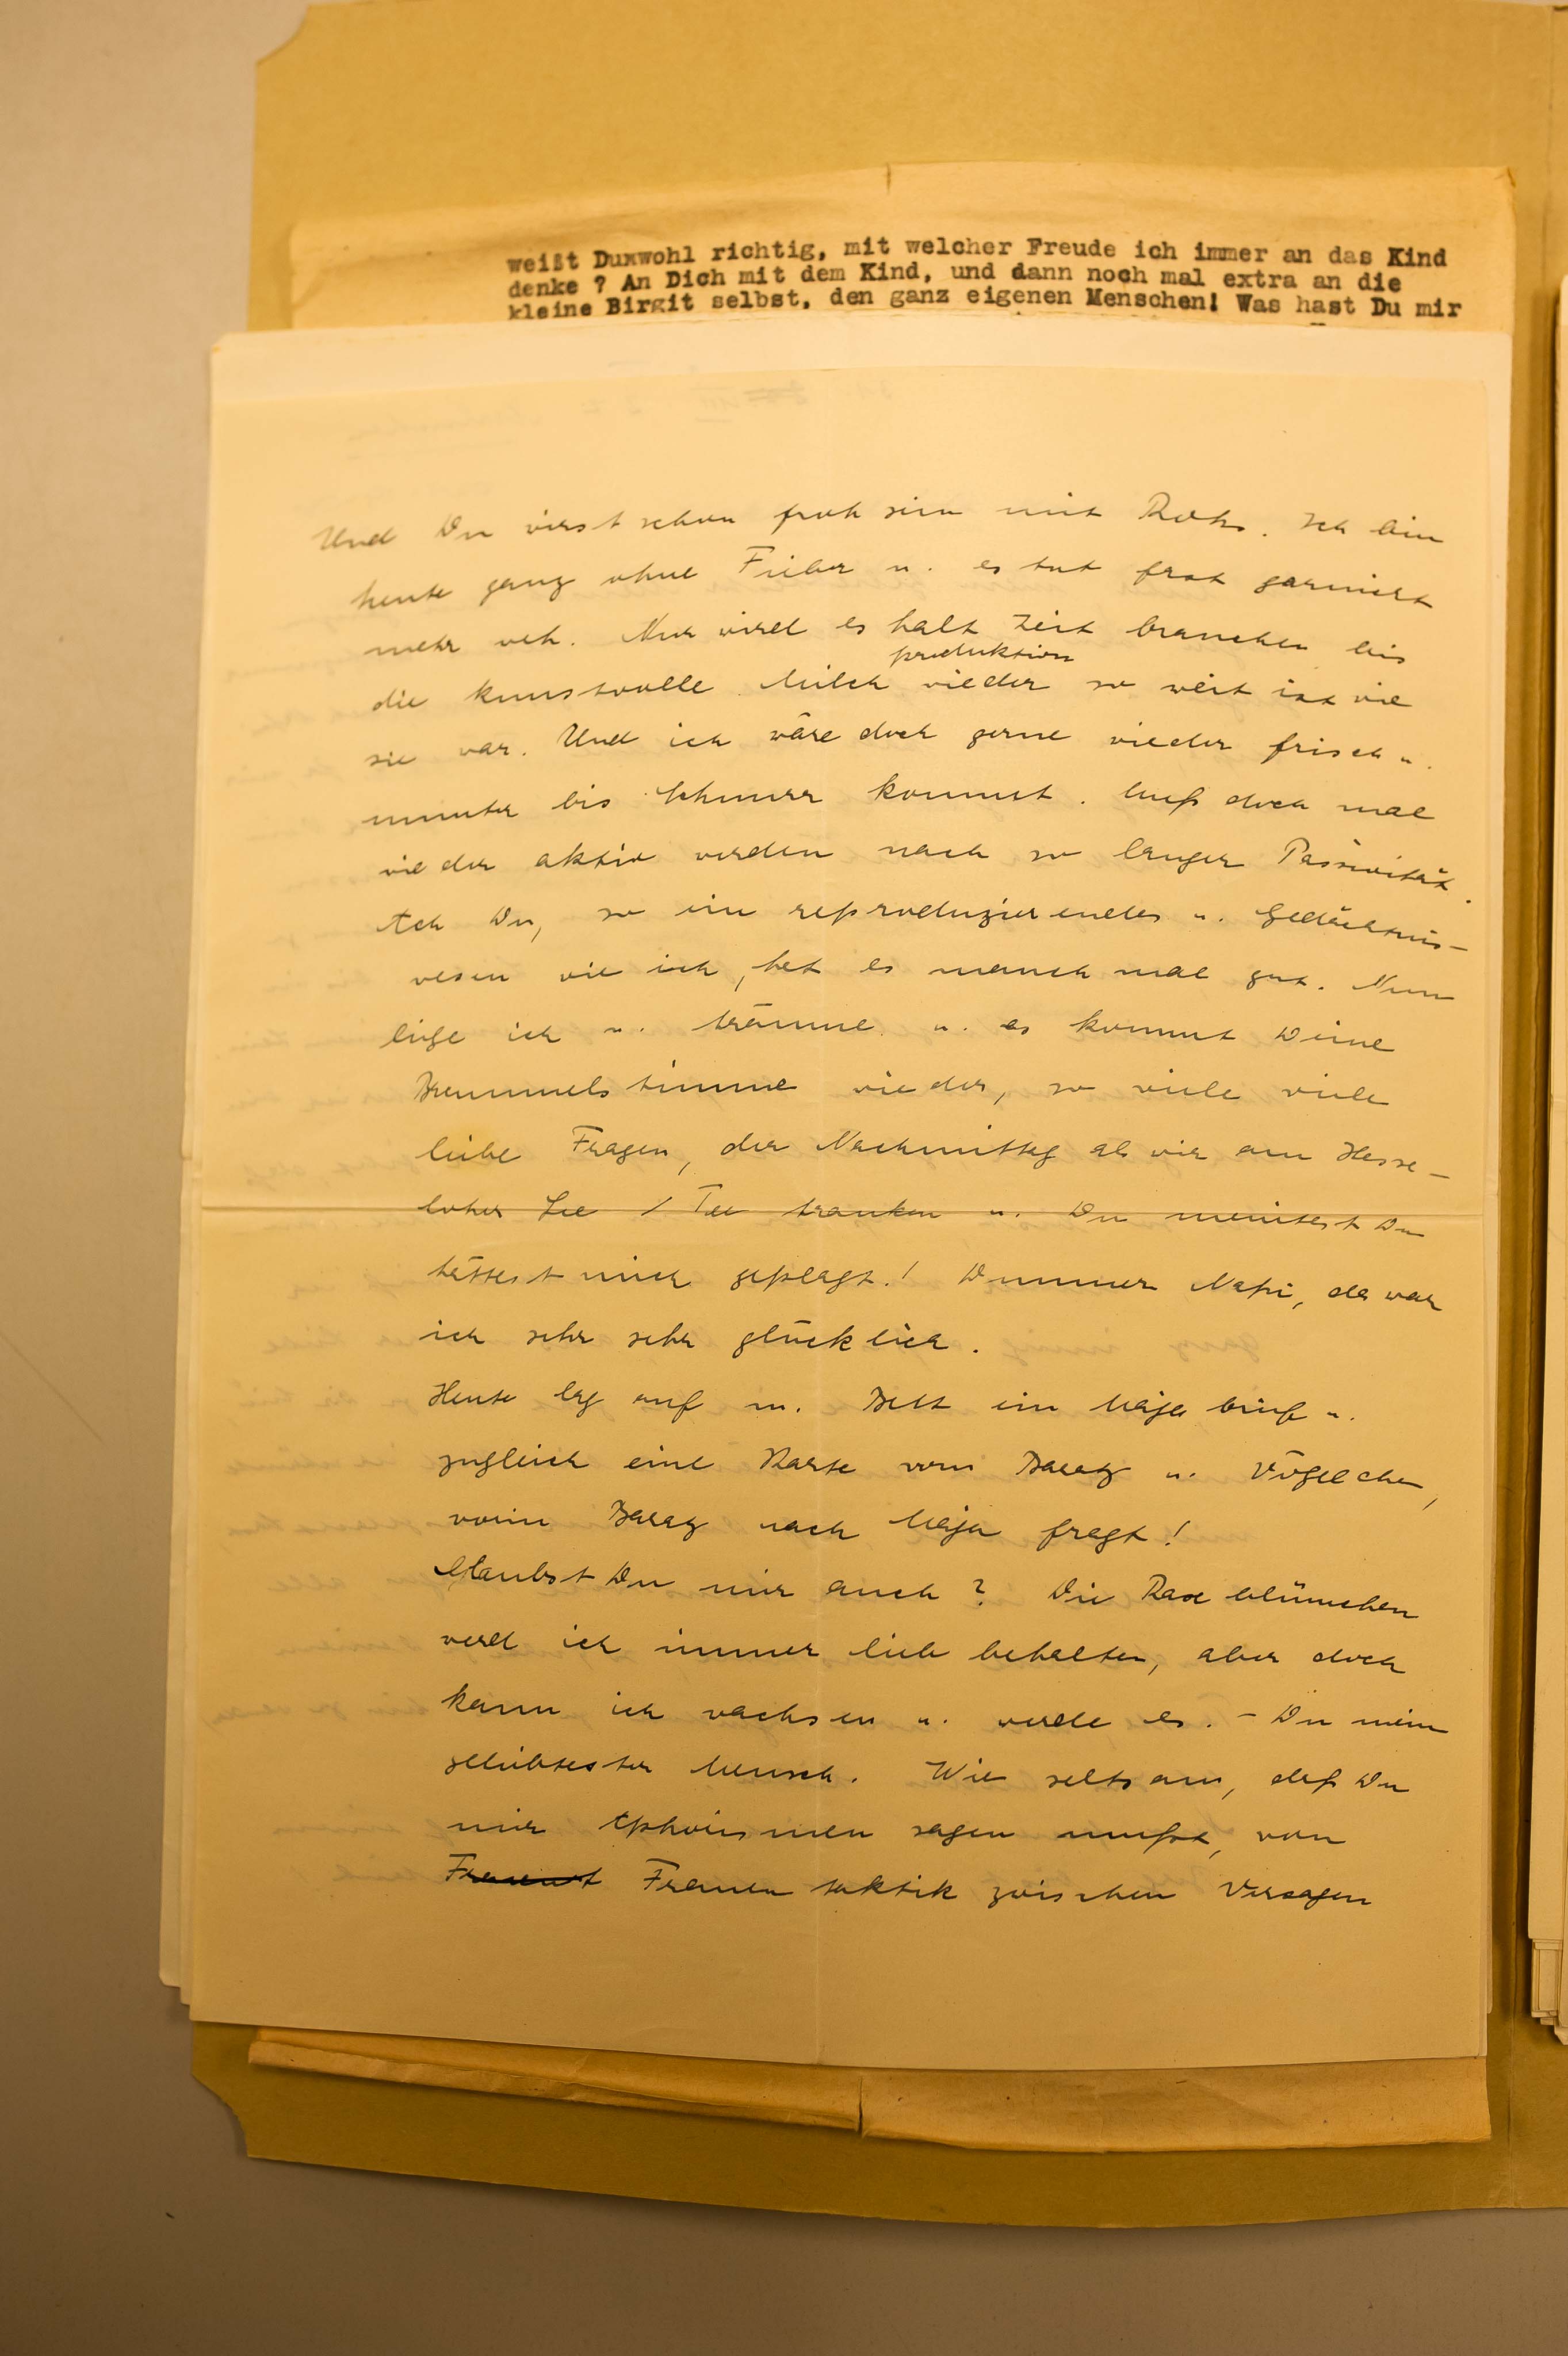 weißt Duxwohl richtig, mit welcher Freude ich immer an das Kind
denke ? An Dich mit dem Kind, und dann noch mal extra an die
kleine Birgit selbst, den ganz eigenen Menschen! Was hast Du mir
Und Du wirst schon froh sein mit Ich bin
heute ganz ohne Fieber u. es tut fast garnicht
mehr weh. Nur wird es halt Zeit brauchen bis
produktion
die kunstvolle Milch wieder so weit ist wie
sie war. Und ich wäre doch gerne wieder frisch u.
munter bis kommst. Muß doch mal
wieder aktiv werden nach so langer Passivität.
Ach Du, so ein reproduzierendes u. Gedächtnis-
wesen wie ich, hat es manch mal gut. Nun
liege ich u. träume u. es kommt Deine
Brummelstimme wieder, so viele viele
liebe Fragen, der Nachmittag als wir am Hesse-
loher See / Tee tranken u. Du meintest Du
hättest mich geplagt! Dummer da war
ich sehr sehr glücklich.
Heute lag auf m. Bett ein Maja brief u.
zugleich eine Karte vom u. Vögelchen,
worin nach Maja fragt!
Glaubst Du mir auch? Die blümchen
werd ich immer lieb behalten, aber doch
kann ich wachsen u. werde es. – Du mein
geliebtester Mensch. Wie seltsam, daß Du
mir Aphorismen sagen mußt, von
Frauent Frauen taktik zwischen Versagen